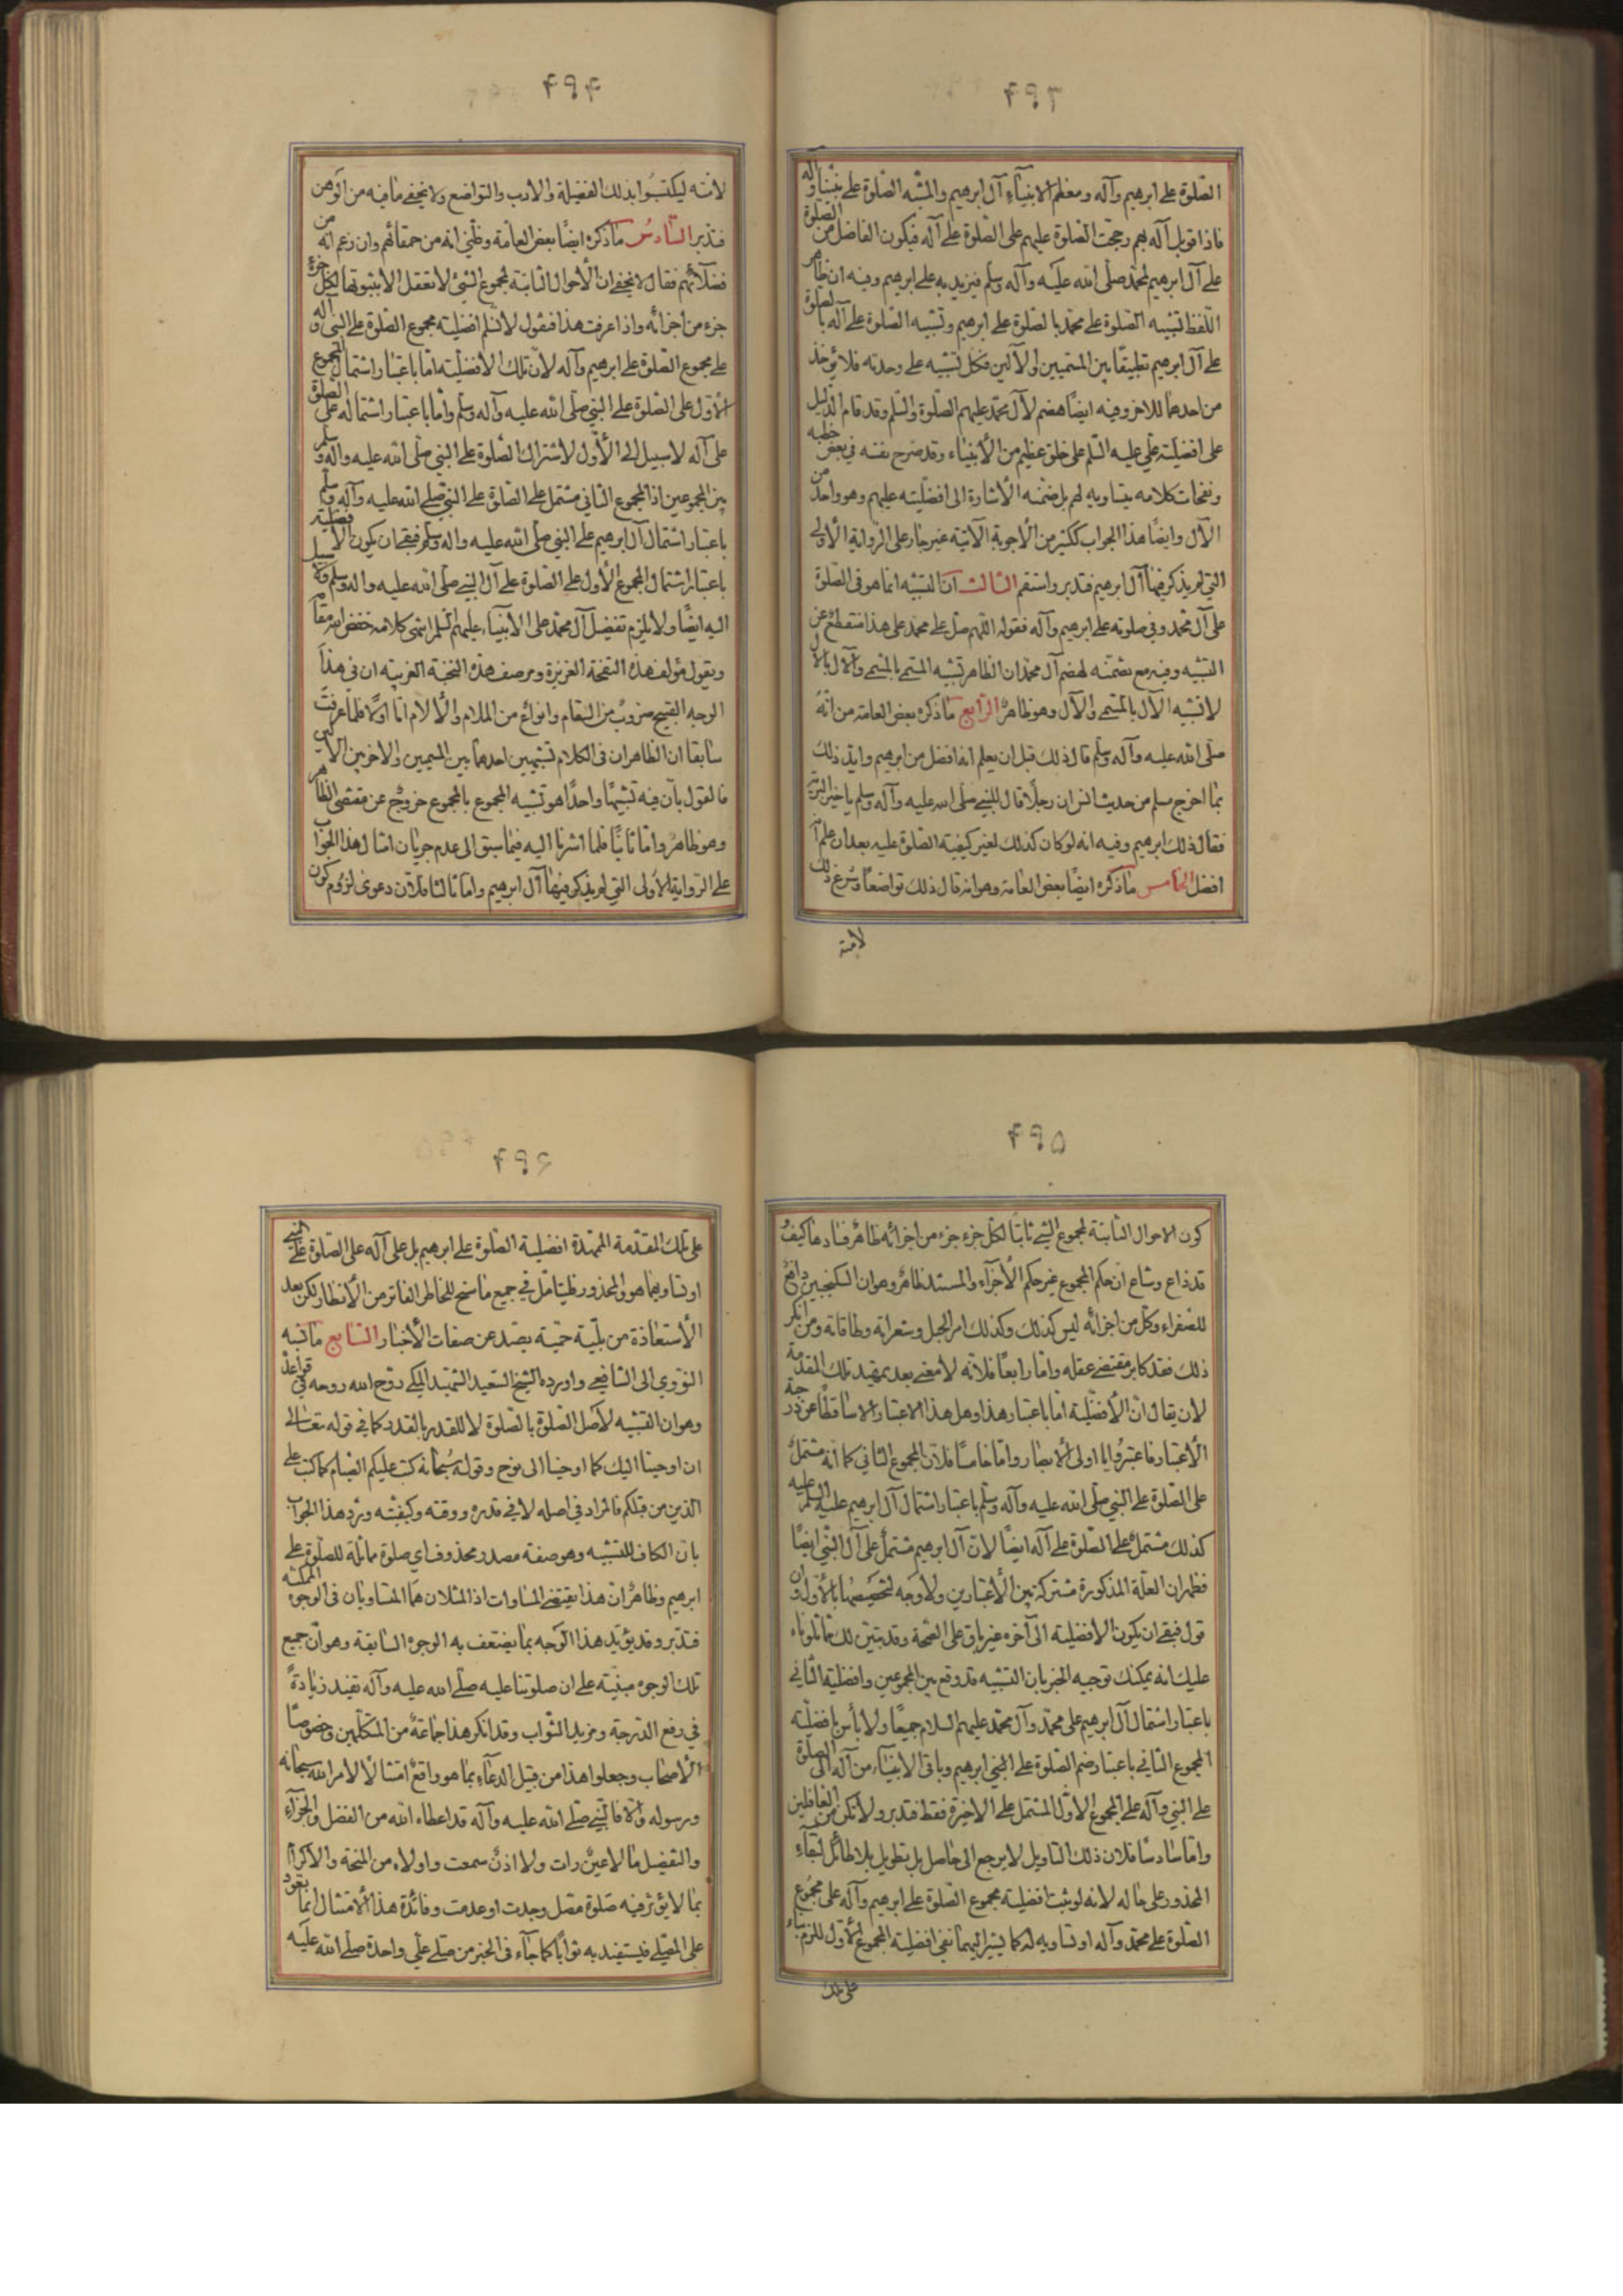 ۴۹۳
الصّلوة على ابرهيم وآله ومعظم الانبيآء آل ابرهيم والمشبه الصّلوة على نبيّنا وآله
فاذا قوبل آله بهم رجحت الصّلوة عليهم على الصّلوة على آله فيكون الفاضل من الصلوة
على آل ابرهيم لمحمّد صلّى الله عليه وآله وسلّم فيزيد به على ابرهيم وفيه ان ظاهر
اللّفظ تشبيه الصّلوة على محمّد بالصّلوة على ابرهيم وتشبيه الصّلوة على آله بالصلوة
على آل ابرهيم تطبيقًا بين المسمّيين والآلين فكل تشبيه على وحدته فلا يؤخذ
من احدهما للاخر وفيه ايضًا هضم لآل محمّد عليهم الصّلوة والسّلم وقد قام الدّليل
على افضليّة علّي عليه السّلم على خلق عظيم من الأنبيآء وقد صرح نفسه في بعض خطبه
ونفحات كلامه بتساويه لهم بل ضمّنه الأشارة الى افضليّته عليهم وهو واحد من
الآل وايضًا هذا الجواب ككثير من الأجوبة الآتية غير جار على الرّواية الأولى
التي لم يذكر فيها آل ابرهيم فتدبر واستقم الثالث انّ التشبيه انما هو في الصّلوة
على آل محمّد وفي صلوته على ابرهيم وآله فقوله اللّهم صلّ على محمد على هذا منقطع عن
التشبيه وفيه مع تضمّنه لهضم آل محمّد ان الظاهر تشبيه المسمّى بالمسمّى والآل بالآل
لا تشبيه الآل بالمسمّى والآل وهو ظاهر الرّابع ما ذكره بعض العامّة من انّه
صلّى الله عليه وآله وسلّم قال ذلك قبل ان يعلم انه افضل من ابرهيم وايّد ذلك
بما اخرج مسلم من حديث انس ان رجلًا قال للنّبي صلّى الله عليه وآله وسلم يا خير البرّية
فقال ذلك ابرهيم وفيه انه لو كان كذلك لغير كيفيّة الصّلوة عليه بعد ان علم انه
افضل الخامس ما ذكره ايضًا بعض العامّة وهو انه قال ذلك تواضعًا وشرع ذلك
لامته
۴۹۴
لامّته ليكتسبُوا بذلك الفضيلة والأدب والتواضع ولا يخفى ما فيه من الوهن
فتدبر السّادسُ ما ذكره ايضًا بعض العامّة وظنّي انه من حمقائهم وان زعم انه من
فضلآئهم فقال لا يخفى ان الأحوال الثابتة لمجموع الشّئ لا تعقل الا بثبوتها لكلّ جزء
جزء من اجزائه واذا عرفت هذا فنقول لا نسلم افضليّة مجموع الصّلوة على النبى وآله
على مجموع الصّلوة على ابرهيم وآله لأنّ تلك الأفضليّة امّا باعتبار اشتمال المجموع
الأوّل على الصّلوة على النّبي صلّى الله عليه وآله وسلّم وامّا باعتبار اشتماله على الصّلوة
على آله لا سبيل الى الأوّل لاشتراك الصّلوة على النّبي صلّى الله عليه وآله وسلّم
بين المجموعين اذ المجموع الثاني مشتمل على الصّلوة على النّبي صلّى الله عليه وآله وسلّم
باعتبار اشتمال آل ابرهيم على النّبي صلّى الله عليه وآله وسلّم فبقي ان يكون الأفضلية
باعتبار اشتمال المجموع الأول على الصّلوة على آل النبي صلّى الله عليه وآله وسلم ولا سبيل
اليه ايضًا ولا يلزم تفضيل آل محمّد على الأنبيآء عليهم السّلم انتهى كلامه خفض الله مقامه
ويقول مؤلف هذه التحفة الغزيزة ومرصف هذه النخبة الغريبة ان في هذا
الوجه القبيح ضروبٌ من السقام وانواع من الملام والألام امّا اوّلًا فلما عرفت
سابقا ان الظاهر ان في الكلام تشبيهين احدهما بين المسمّيين والاخر بين الآلين
فالقول بأن فيه تشبيهًا واحدًا هو تشبيه المجموع بالمجموع خروجٌ عن مقتضى الظاهر
وهو ظاهر وامّا ثانيًا فلما اشرنا اليه فيما سبق الى عدم جريان امثال هذا الجواب
على الرّواية الأولى التي لم يذكر فيها آل ابرهيم وامّا ثالثا فلأن دعوى لزوم كون
۴۹۵
كون الاحوال الثابتة لمجموع الشّئ ثابتًا لكلّ جزء جزء من اجزائه ظاهر فسادها كيف
قد ذاع وشاع انّ حكم المجموع غير حكم الأجزآء والمستند ظاهر وهو ان السكنجبين دافع
للصّفراء وكلّ من اجزائه ليس كذلك وكذلك امر الحبل وشعراته وطاقاته ومن انكر
ذلك فقد كابر مقتضى عقله وامّا رابعًا فلأنّه لا معنى بعد تمهيد تلك المقدّمة
لأن يقال انّ الأفضليّة امّا باعتبار هذا وهل هذا الاعتبار الا ساقطًا عن درجة
الأعتبار فاعتبرُوا يا اولى الأبصار وامّا خامسًا فلانّ المجموع الثاني كما انّه مشتمل
على الصّلوة على النّبي صلّى الله عليه وآله وسلّم باعتبار اشتمال آل ابرهيم عليه السّلم عليه
كذلك مشتمل على الصّلوة على آله ايضًا لانّ آل ابرهيم مشتمل على آل النّبي ايضًا
فظهر ان العلّة المذكورة مشتركة بين الأعتبارين ولا وجه لتخصيصها بالأوّل وان
قول فبقي ان يكون الافضليّة الى آخره غير باق على الصّحة وقد تبيّن لك ممّا تلوناه
عليك انه يمكنك توجيه الخبر بان التشبيه قد وقع بين المجموعين وافضليّة الثّاني
باعتبار اشتمال آل ابرهيم على محمّد وآل محمّد عليهم السلام جميعًا ولا بأس بافضليّة
المجموع الثّاني باعتبار ضم الصّلوة على النّبي ابرهيم وباقي الأنبيآء من آله الى الصلوة
على النبي وآله على المجموع الأوّل المشتمل على الاخيرة فقط فتدبر ولا تكن من الغافلين
وامّا سادسًا فلان ذلك التّاويل لا يرجع الى حاصل بل تطويل بلا طائل لبقآء
المحذور على حاله لأنه لو ثبت افضليّة مجموع الصّلوة على ابرهيم وآله على مجموع
الصّلوة على محمّد وآله او تساويه له كما يشير اليهما نفي افضليّة المجموع الأوّل للزم بناء
على تلك
۴۹۶
على تلك المقدّمة الممهّدة افضلية الصّلوة على ابرهيم بل على آله على الصّلوة على النبي
او تساويهما هو المحذور فليتامّل في جميع ما سنح للخاطر الفاتر من الأنظار لكن بعد
الأستعاذة من بليّة حميّة تصّد عن صفات الأخيار السّابع ما نسبه
النّووي الى الشافعي واورده الشّيخ السّعيد الشّهيد المكّي روّح الله روحه في قواعده
وهو ان التشبيه لأصل الصّلوة بالصّلوة لا للقدر بالقدر كما في قوله تعالى
ان اوحينا اليك كما اوحينا الى نوح وقوله سُبحانه كتب عليكم الصّيام كما كتب على
الذين من قبلكم فالمراد في اصله لا في قدره ووقته وكيفيّته وتردّ هذا الجواب
بان الكاف للتّشبيه وهو صفة مصدر محذوف اي صلوة مماثلة للصّلوة على
ابرهيم وظاهر انّ هذا يقتضي المساوات اذ المثلان هما المتساويان في الوجوه الممكنة
فتدبّر وقد يؤيّد هذا الوجه بما يضعف به الوجوه السّابقة وهو انّ جميع
تلك الوجوه مبنيّة على ان صلوتنا عليه صلّى الله عليه وآله تفيد زيادةً
في رفع الدّرجة ومزيد الثّواب وقد انكر هذا جماعةٌ من المتكلّمين وخصوصًا
الأصحاب وجعلوا هذا من قبيل الدعآء بما هو واقع امتثالًا لأمر الله سبحانه
ورسوله والّا فالنّبي صلّى الله عليه وآله قد اعطاه الله من الفضل والجزآء
والتفضيل ما لا عينٌ رات ولا اذنٌ سمعت واولاه من المنحة والاكرام
بما لا يؤثر فيه صلوة مصلّ وجدت او عدمت وفائدة هذا الأمتثال انما يعود
على المصلّي فيستفيد به ثوابًا كما جآء في الخبر من صلّى علّي واحدة صلّى الله عليه